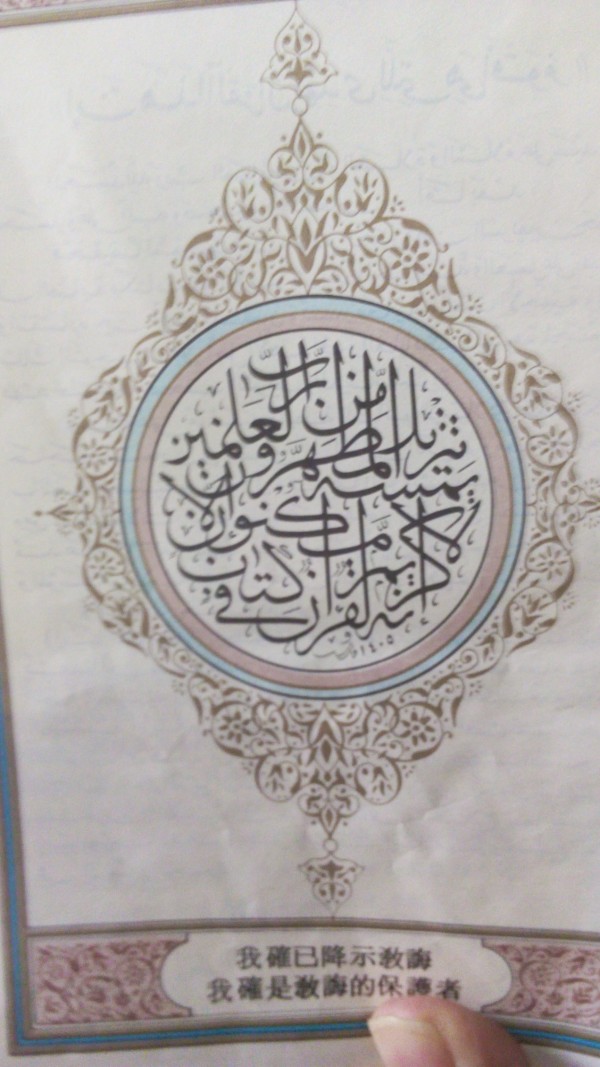 إنه لقرآن كريم
في كتاب مكنون
لا يمسه إلا المطهرون
تنزيل من رب العلمين
١٤٠٥
我確已降示教誨
我確是教誨的保護者